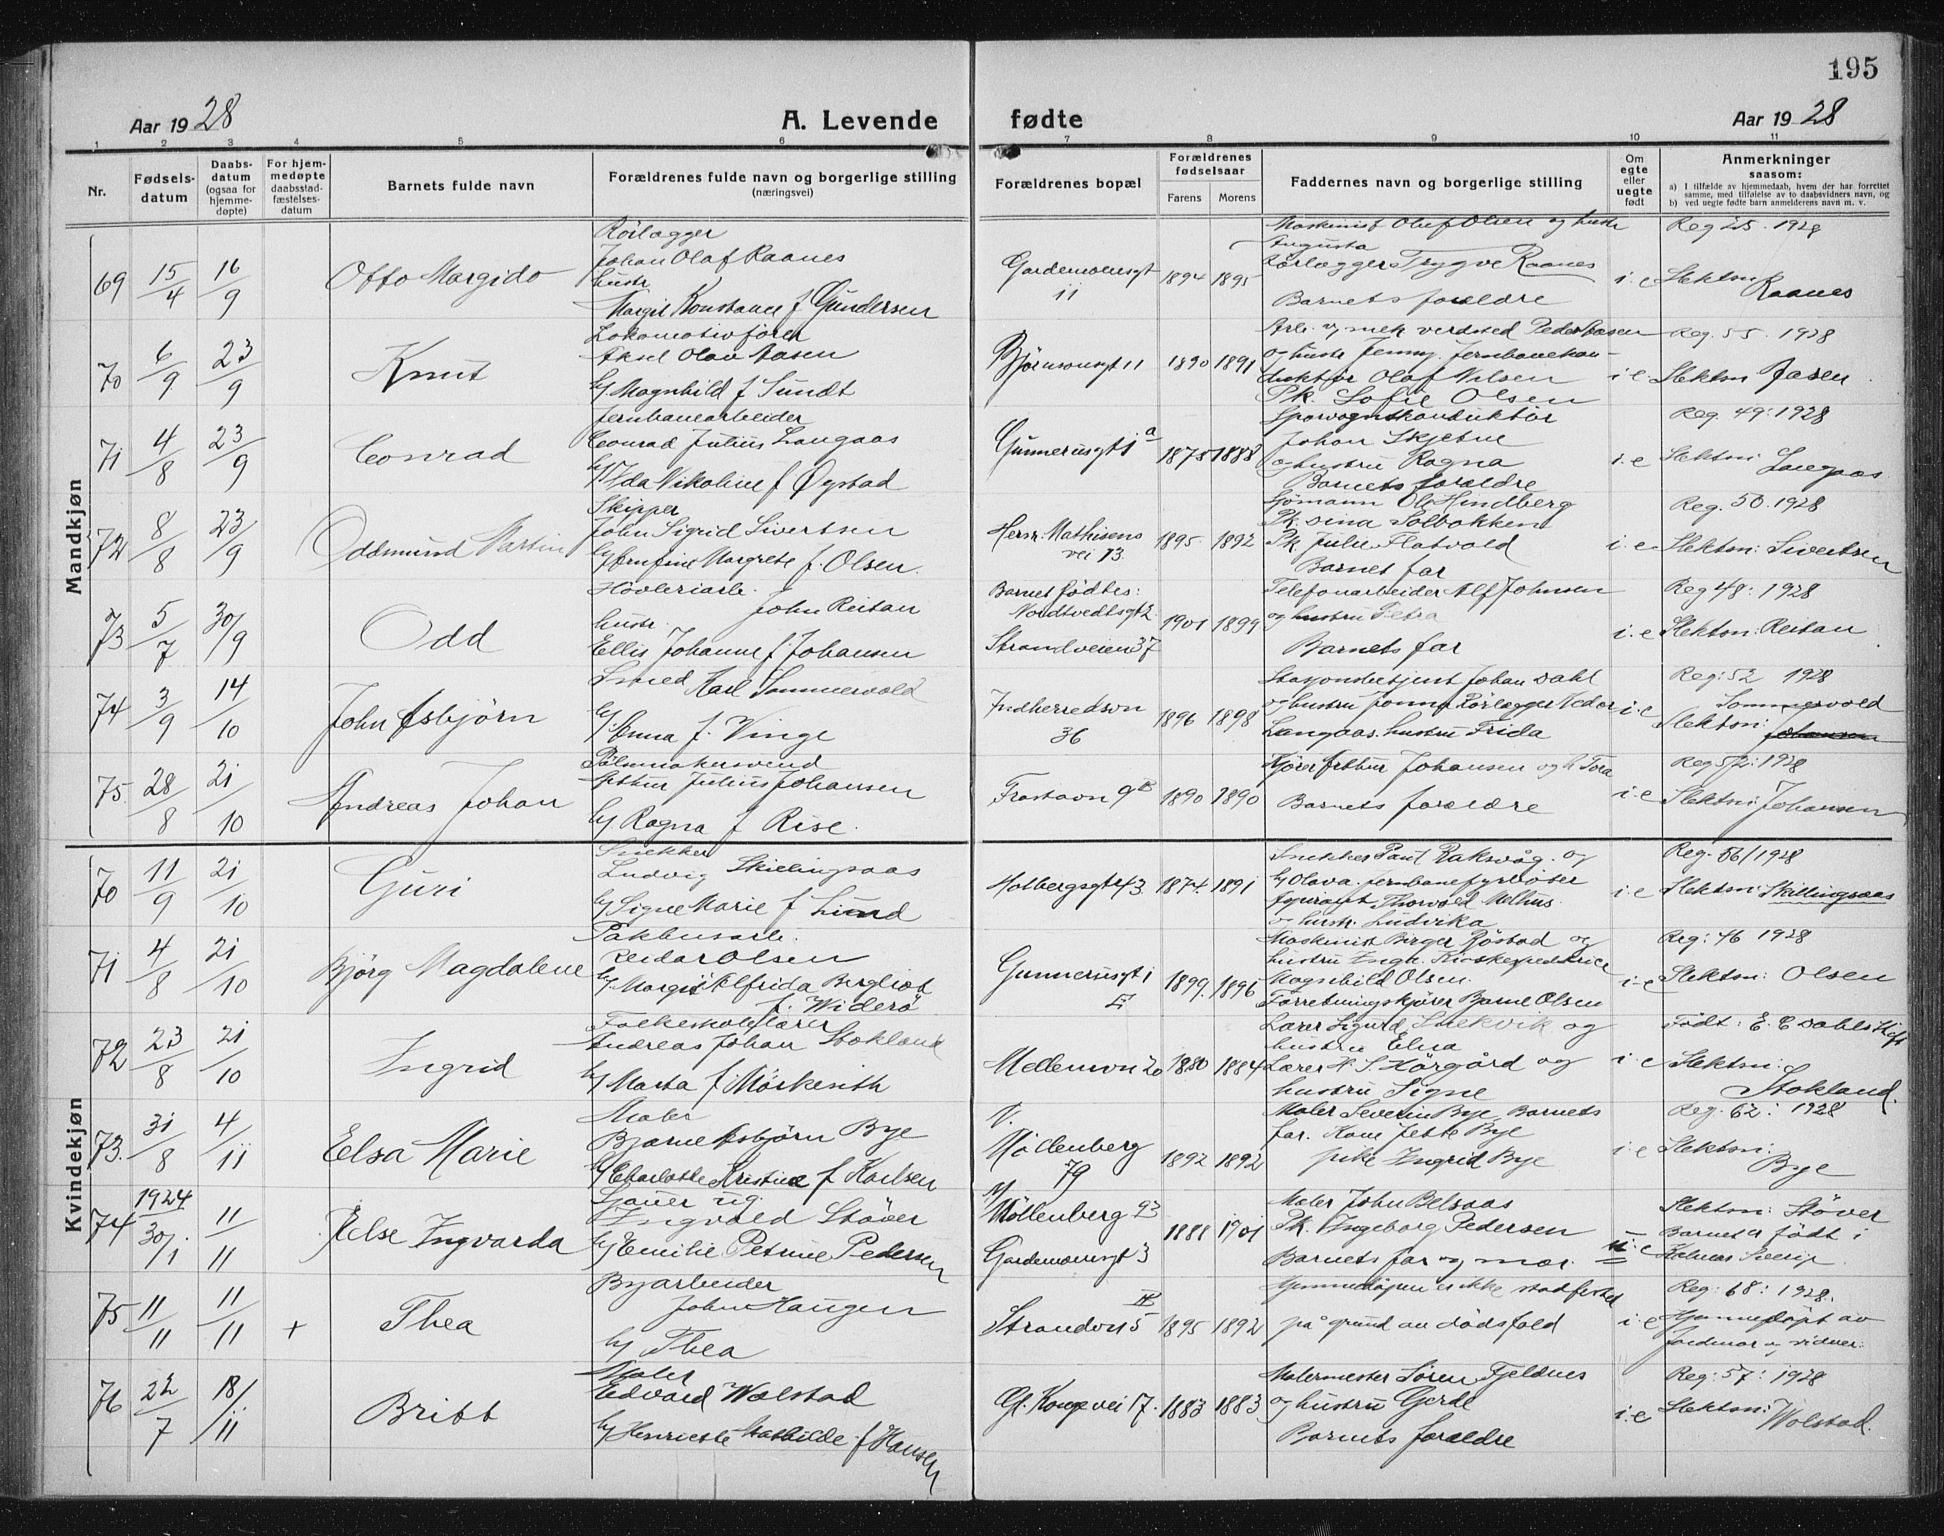 195
Aar 19 28
A. Levende fødte
Aar 19 28
1 2 3 4 5 6 7 8 9 10 11
Nr.
Fødsels-
datum
Daabs-
datum
(ogsaa for
hjemme-
døpte)
For hjem-
medøpte
daabsstad-
fæstelses-
datum
Barnets fulde navn
Forældrenes fulde navn og borgerlige stilling
(næringsvei)
Forældrenes bopæl
Forældrenes
fødselsaar
Farens Morens
Faddernes navn og borgerlige stilling
Om
egte
eller
uegte
født
Anmerkninger
saasom:
a) I tilfælde av hjemmedaab, hvem der har forrettet
samme, med tilføielse av to daabsvidners navn, og
b) ved uegte fødte barn anmelderens navn m. v.
Mandkjøn
69 15/4 16/9 Otto Margido
Rørlægger
Johan Olaf Raanes
hustr.
Margit Konstanse f Gundersen
Gardemoensgt
11
1894 1895
Maskinist Oluf Olsen og hustr
Augusta
Rørlægger Trygve Raanes
Barnets forældre
i. e
Reg 25. 1928
Slektsn: Raanes
70 6/9 23/9 Knut
Lokomotivfører
Aksel Olav Aasen
h/ Magnhild f Sundt
Bjørnsonsgt 11
1890 1891
Arb. v/ mek verksted Peder Aasen
og hustr Jenny. Jernbanekon-
duktør Olaf Nilsen
Pk. Sofie Olsen
i. e.
Reg. 55. 1928
Slektsn: Aasen
71 4/8 23/9 Conrad
Jernbanearbeider
Conrad Julius Langaas
h/ Ida Nikoline f Øystad
Gunnerusgt 1 a
1878 1888
Sporvognskonduktør
Johan Skjetne
og hustru Ragna
Barnets forældre
i. e
Reg. 49: 1928
Slektsn: Langaas
72 8/8 23/9 Oddmund Martin
Skipper
John Sigrid Sivertsen
h/ Jørnfine Margrete f. Olsen.
Herm. Mathisens
vei 13
1895. 1892
Sjømann Ole Hindberg
Pk. Dina Solbakken
Pk Julie Flatvold
Barnet far
i. e
Reg. 50. 1928
Slektsn: Sivertsen
73 5/7 30/9 Odd
Høvleriarb.
John Reitan
hustr.
Ellis Johanne f Johansen
Barnet fødtes:
Nordtvedtsgt 2
Strandveien 37
1901 1899
Telefonarbeider Alf Johnsen
og hustru Petra
Barnets far
i. e
Reg 48: 1928
Slektsn: Reitan
74 3/9 14/10 John Asbjørn
Smed Karl Sommervold
h/ Anna f. Vinge
Indherredsvn
36
1896 1898
Stasjonsbetjent Johan Dahl
og hustru Jonna Rørlægger Peder
Langaas. hustru Frida
i. e
Reg: 52 1928
Sommervold
Slektsn: Johansen
75. 28/8 21/10 Andreas Johan
Pølsemakersvend
Arthur Julius Johansen
h/ Ragna f Rise.
Frostavn 9
1890 1890
Kjører Arthur Johansen og h Tora
Barnets forældre
i. e
Reg 52: 1928
Slektsn: Johansen
Kvindekjøn
70 11/9 21/10 Guri
Snekker
Ludvig Skillingsaas
h/ Signe Marie f Lund
Holbergsgt 43
1874. 1891
Snekker Paul Raksvåg. og
h/ Olava. Jernbanefyrbøter
aspirant Thorvald Melhus.
og hustr. Ludvika
i. e
Reg. 56/1928
Slektsn: Skillingsaas
71 4/8 21/10 Bjørg Magdalene
Pakhusarb.
Reidar Olsen
h/ Margit Alfrida Bergliot
f. Widerø
Gunnerusgt 1
1899. 1896
Maskinist Birger Røstad og
hustru Inga. Kioskexpeditrice
Magnhild Olsen.
Forretningskjører Bjarne Olsen
i. e
Reg: 46 1928
Slektsn: Olsen
72 23/8 21/10 Ingrid
Folkeskolelærer
Andreas Johan Stokland
h/ Marta f Mørkesith
Mellemvn 20
1880 1884
Lærer Sigurd Snekvik og
hustru Elna
Lærer K. S. Hårgård og
hustru Signe
i. e
Født: E. C Dahls stift
Slektsn:
Stokland.
73. 31/8 4/11 Elsa Marie
Maler
Bjarne Asbjørn Bye
h/ Charlotte Kristine f Karlsen
V.
Møllenberg
79
1892 1892
Maler Severin Bye Barnets
far. Kone Jette Bye
pike Ingrid Bye
i. e
Reg. 62: 1928
Slektsn:
Bye
74 1924 30/1 11/11 Else Ingvarda
Sjauer ug.
Ingvald Støver
h/ Emilie Petrine Pedersen
Møllenberg 93
Gardemoensgt 3
1888 1901
Maler John Belsaas
Pk. Ingeborg Pedersen
Barnets far og mor.
u. e
Slektsn: Støver
Barnet a født i
Kalmar Sverige
75 11/11 11/11 + Thea
Byarbeider
John Haugen
h/ Thea
Strandvn 5
1895 1892
Hjemmedøpen er ikke stadfestet
på grund av dødsfald
i. e
Reg: 68: 1928.
Hjemmedøpt av
jordmor og vidner:
76 22/7 18/11 Britt
Maler
Edvard Wolstad
h/ Henriette Mathilde f Hansen
Gl. Kongevei 17.
1883 1883
Malermester Søren Fjeldnes
og hustru Gerda
Barnets forældre
i. e
Reg: 57: 1928
Slektsn:
Wolstad.